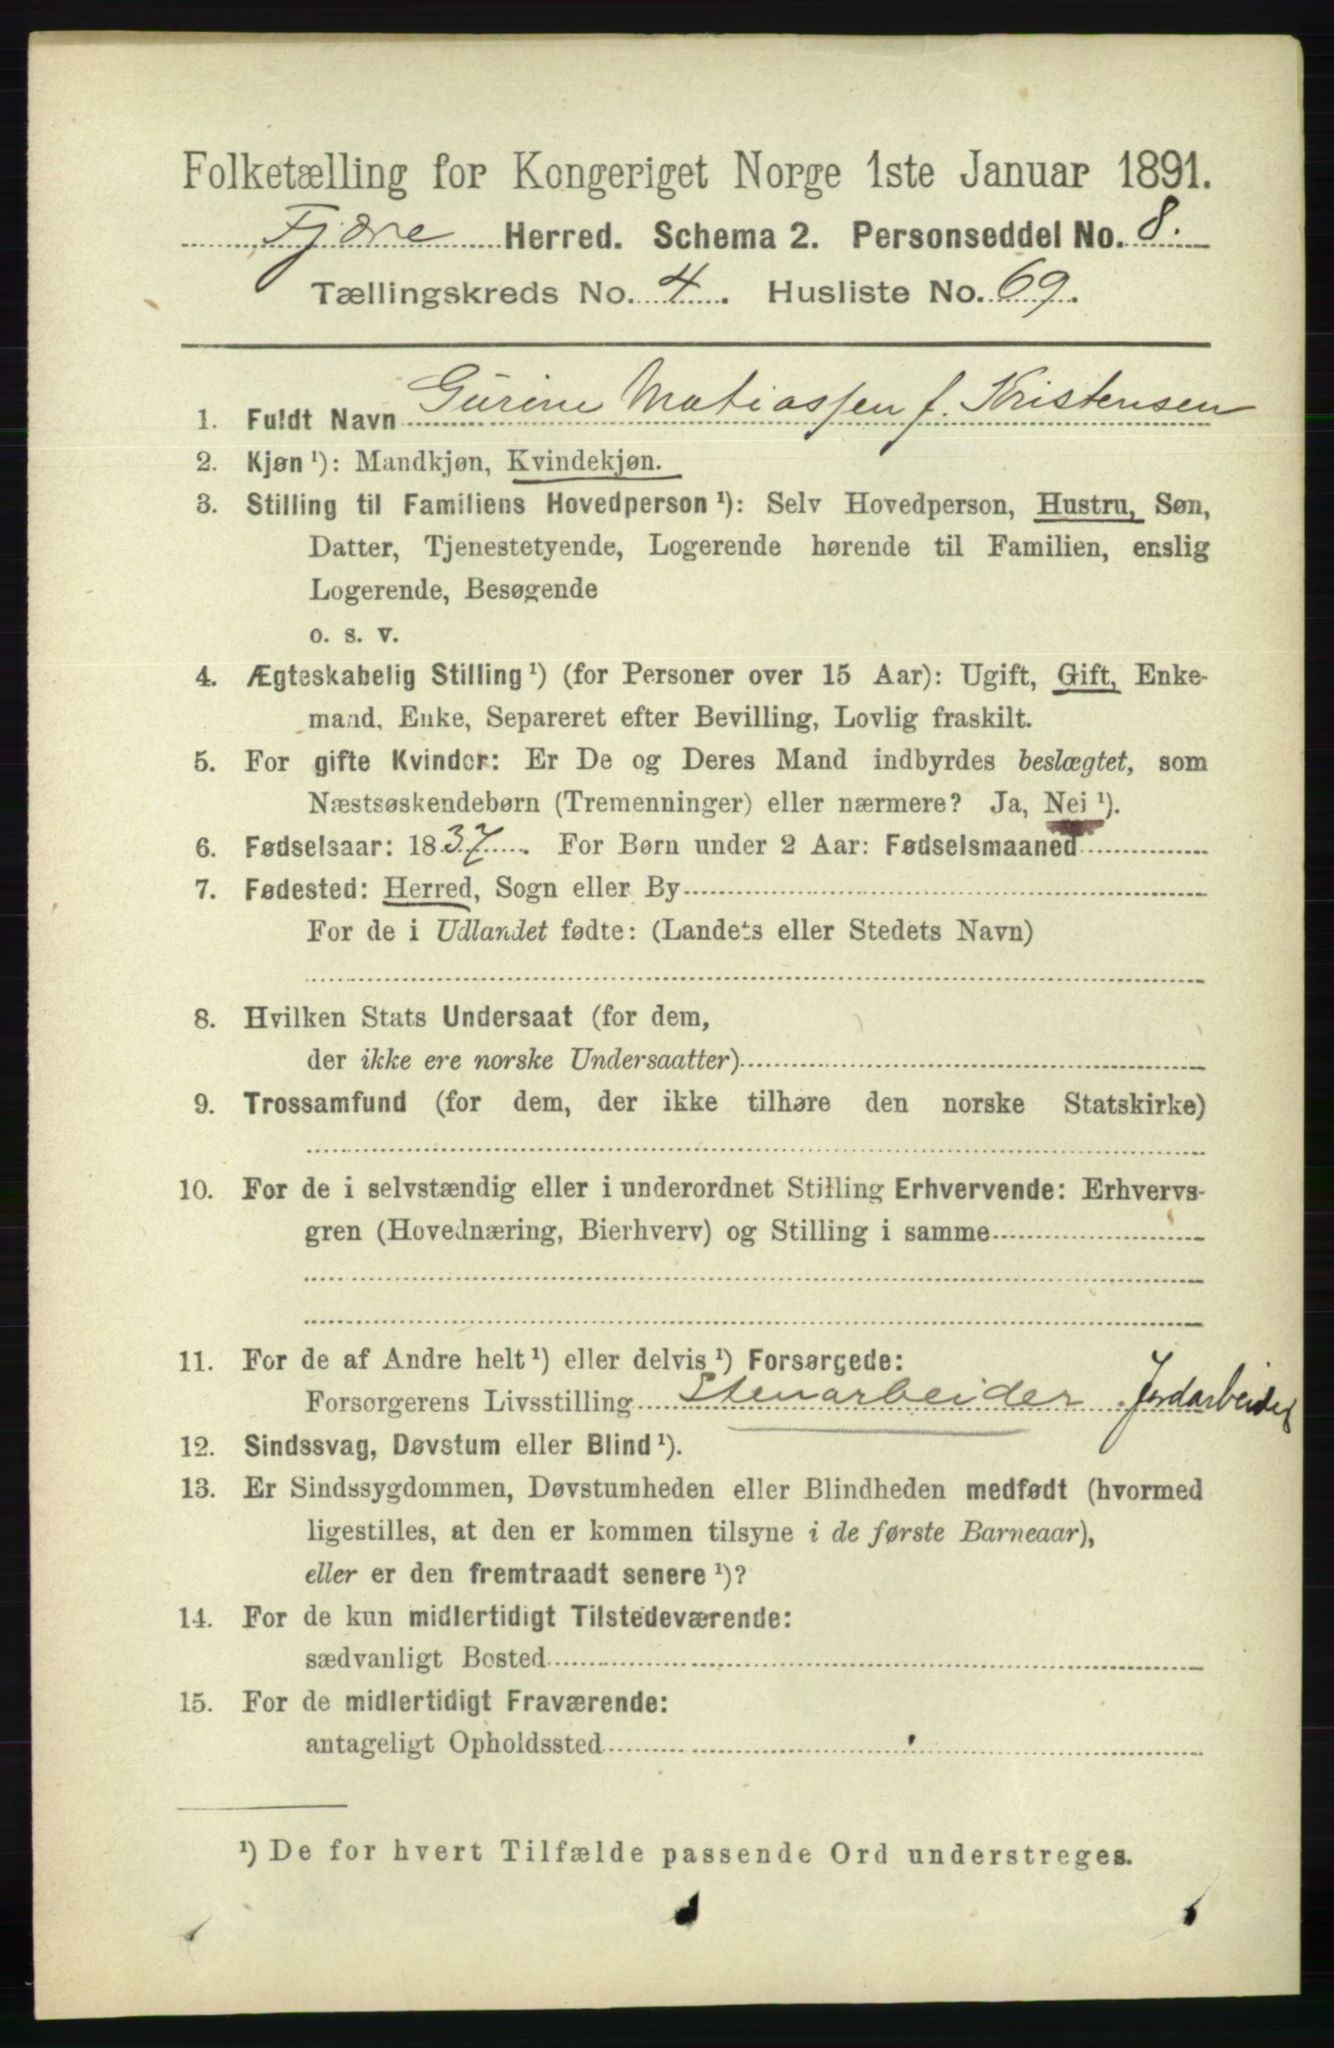 Folketælling for Kongeriget Norge 1ste Januar 1891.
Fjære Herred. Schema 2. Personseddel No. 8.
Tællingskreds No. 4. Husliste No. 69.
1. Fuldt Navn Gurine Matiassen f. Kristensen
2. Kjøn ¹): Mandkjøn, Kvindekjøn.
3. Stilling til Familiens Hovedperson ¹): Selv Hovedperson, Hustru, Søn,
Datter, Tjenestetyende, Logerende hørende til Familien, enslig
Logerende, Besøgende
o. s. v.
4. Ægteskabelig Stilling ¹) (for Personer over 15 Aar): Ugift, Gift, Enke-
mand, Enke, Separeret efter Bevilling, Lovlig fraskilt.
5. For gifte Kvinder: Er De og Deres Mand indbyrdes beslægtet, som
Næstsøskendebørn (Tremenninger) eller nærmere? Ja, Nei ¹).
6. Fødselsaar: 1837. For Børn under 2 Aar: Fødselsmaaned
7. Fødested: Herred, Sogn eller By
For de i Udlandet fødte: (Landets eller Stedets Navn)
8. Hvilken Stats Undersaat (for dem,
der ikke ere norske Undersaatter)
9. Trossamfund (for dem, der ikke tilhøre den norske Statskirke)
10. For de i selvstændig eller i underordnet Stilling Erhvervende: Erhvervs-
gren (Hovednæring, Bierhverv) og Stilling i samme
11. For de af Andre helt ¹) eller delvis ¹) Forsørgede:
Forsørgerens Livsstilling Stenarbeider Jordarbeider
12. Sindssvag, Døvstum eller Blind ¹).
13. Er Sindssygdommen, Døvstumheden eller Blindheden medfødt (hvormed
ligestilles, at den er kommen tilsyne i de første Barneaar),
eller er den fremtraadt senere ¹)?
14. For de kun midlertidigt Tilstedeværende:
sædvanligt Bosted
15. For de midlertidigt Fraværende:
antageligt Opholdssted
¹) De for hvert Tilfælde passende Ord understreges.